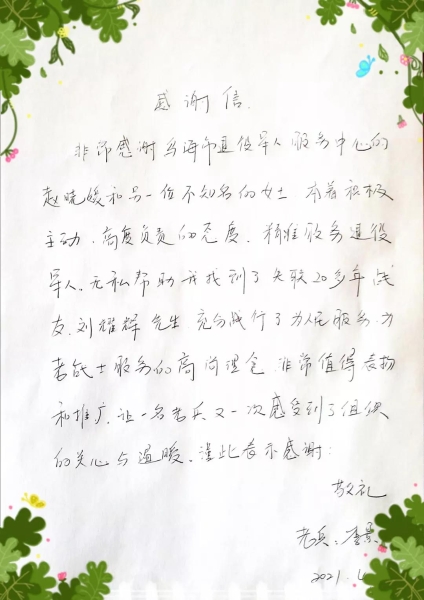 感谢信.
非常感谢乌海市退役军人服务中心的
赵晓媛和另一位不知名的女士 本着积极
主动、高度负责的态度、精准服务退役
军人、无私帮助我找到了失联20多年战
友、刘耀辉先生、充分践行了为人民服务、为
老战士服务的高尚理念、非常值得表扬
和推广、让一名老兵又一次感受到了组织
的关心与温暖、谨此表示感谢:
敬礼
老兵: 景
2021.4